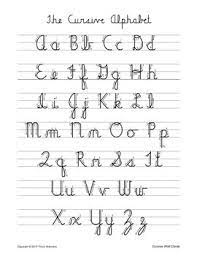 The Cursive Alphabet
Aa Bb Cc Dd
Ee Ff Gg Hh
Ii Jj Kk Ll
Mm Nn Oo Pp
Qq Rr Ss Tt
Uu Vv Ww
Xx Yy Zz